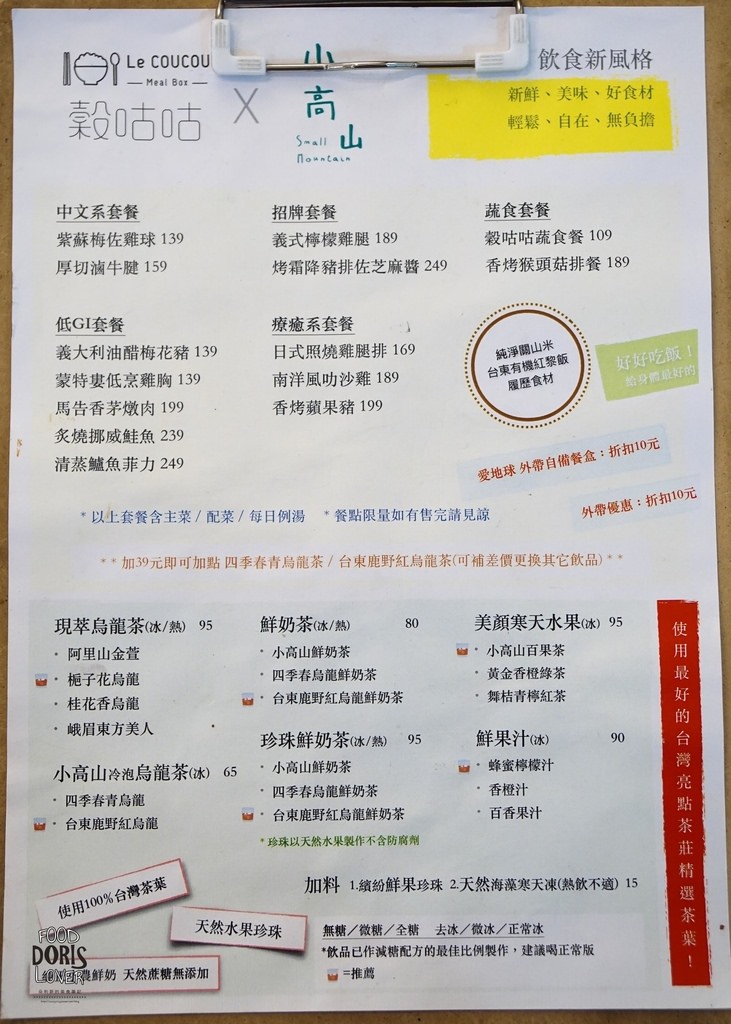 Le COUCOU
Meal Box
穀咕咕
X
小高山
Small
Mountain
飲食新風格
新鮮、美味、好食材
輕鬆、自在、無負擔
中文系套餐
紫蘇梅佐雞球 139
厚切滷牛腱 159
招牌套餐
義式檸檬雞腿 189
烤霜降豬排佐芝麻醬 249
蔬食套餐
穀咕咕蔬食餐 109
香烤猴頭菇排餐 189
低GI套餐
義大利油醋梅花豬 139
蒙特婁低烹雞胸 139
馬告香茅燉肉 199
炙燒挪威鮭魚 239
清蒸鱸魚菲力 249
療癒系套餐
日式照燒雞腿排 169
南洋風叻沙雞 189
香烤蘋果豬 199
純淨關山米
台東有機紅藜飯
履歷食材
好好吃飯！
給身體最好的
愛地球 外帶自備餐盒：折扣10元
外帶優惠：折扣10元
*以上套餐含主菜 / 配菜 / 每日例湯 *餐點限量如有售完請見諒
**加39元即可加點 四季春青烏龍茶 / 台東鹿野紅烏龍茶(可補差價更換其它飲品)**
現萃烏龍茶(冰/熱) 95
· 阿里山金萱
· 梔子花烏龍
· 桂花香烏龍
· 峨眉東方美人
小高山冷泡烏龍茶(冰) 65
· 四季春青烏龍
· 台東鹿野紅烏龍
鮮奶茶(冰/熱) 80
· 小高山鮮奶茶
· 四季春烏龍鮮奶茶
· 台東鹿野紅烏龍鮮奶茶
珍珠鮮奶茶(冰/熱) 95
· 小高山鮮奶茶
· 四季春烏龍鮮奶茶
· 台東鹿野紅烏龍鮮奶茶
*珍珠以天然水果製作不含防腐劑
美顏寒天水果(冰) 95
· 小高山百果茶
· 黃金香橙綠茶
· 舞桔青檸紅茶
鮮果汁(冰) 90
· 蜂蜜檸檬汁
· 香橙汁
· 百香果汁
使用最好的台灣亮點茶莊精選茶葉！
加料 1.繽紛鮮果珍珠 2.天然海藻寒天凍(熱飲不適) 15
使用100%台灣茶葉
天然水果珍珠
農鮮奶 天然蔗糖無添加
無糖／微糖／全糖 去冰／微冰／正常冰
*飲品已作減糖配方的最佳比例製作，建議喝正常版
=推薦
FOOD
DORIS
LOVER